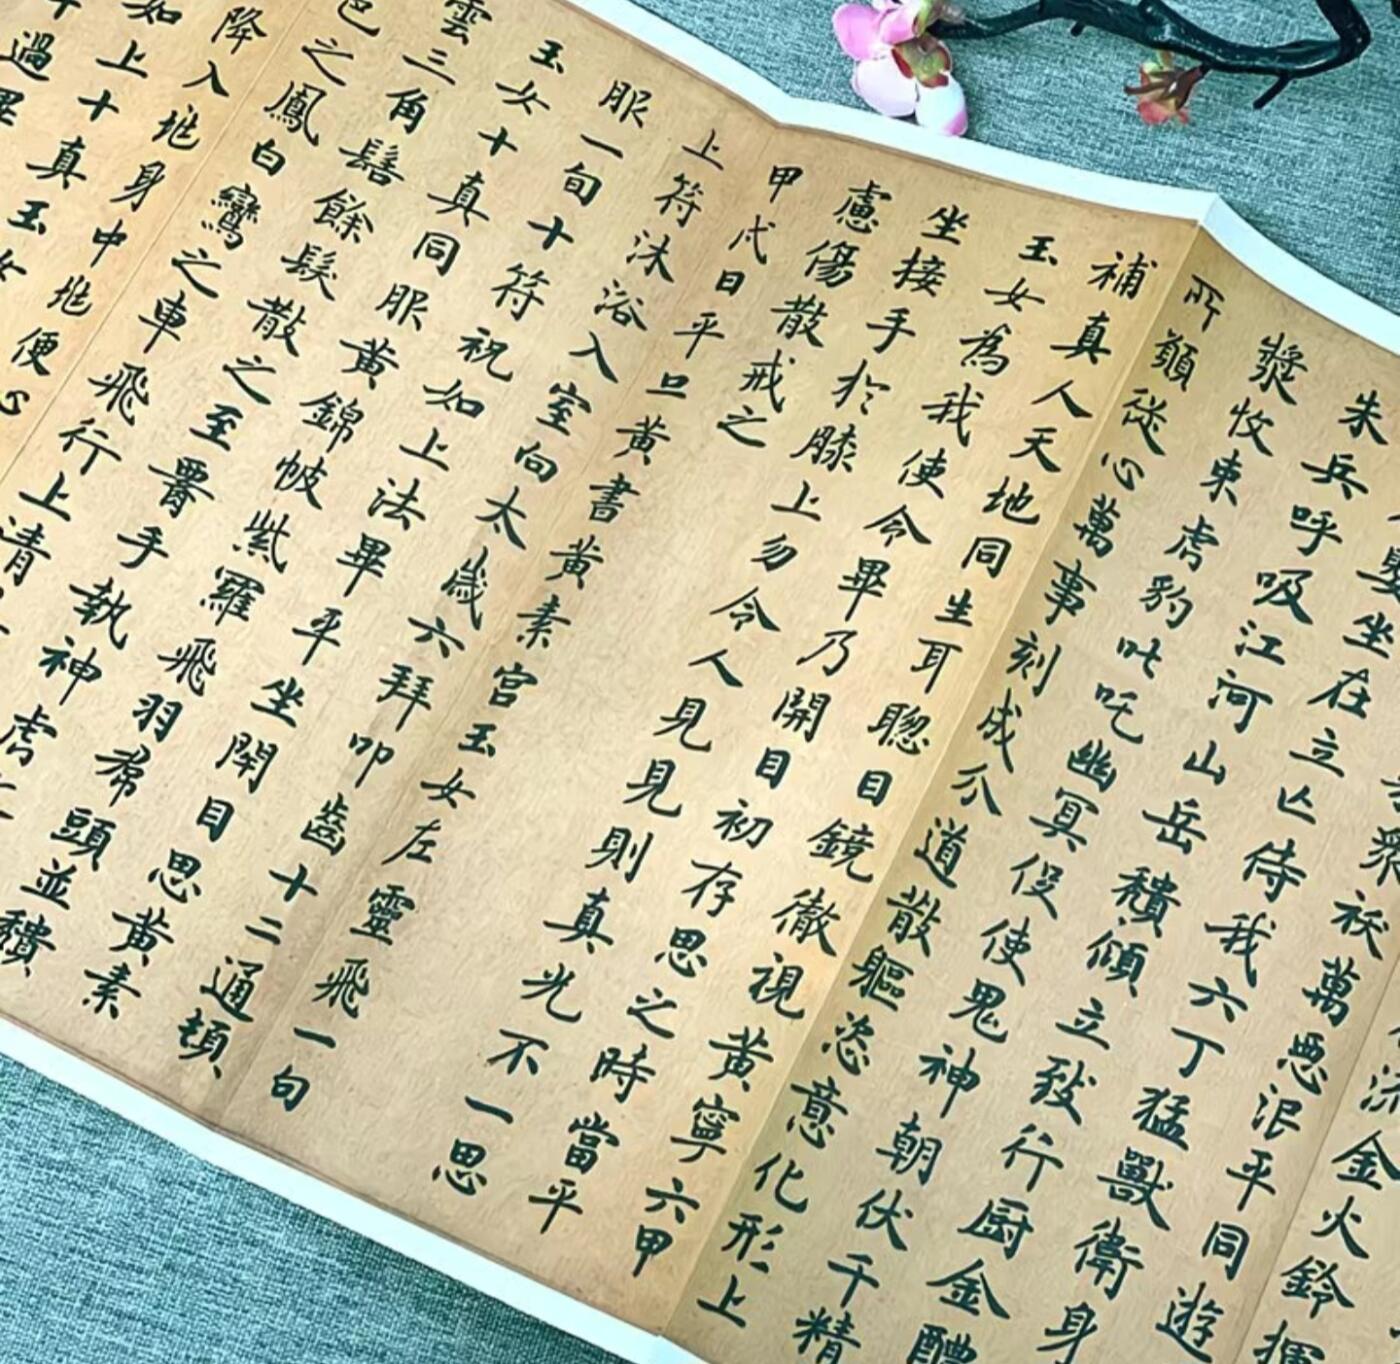 流金火鈴揮
眾祅萬惡泯平同遊
坐在立亡侍我六丁猛獸衛身
朱兵呼吸江河山岳頽傾立致行厨金醴
漿收束虎豹叱吒幽冥役使鬼神朝伏千精
所願從心萬事刻成分道散軀恣意化形上
補真人天地同生耳聰目鏡徹視黃寧六甲
玉女為我使令畢乃開目初存思之時當平
坐接手於膝上勿令人見見則真光不一思
慮傷散戒之
甲戌日平旦黃書黃素宮玉女左靈飛一旬
上符沐浴入室向太歲六拜叩齒十二通頓
服一旬十符祝如上法畢平坐閉目思黃素
玉女十真同服黃錦帔紫羅飛羽帬頭並頽
雲三角髻餘髮散之至手執神虎
色之鳳白鸞之車飛行上清
降入地身中地便
如上十真玉女
過畢